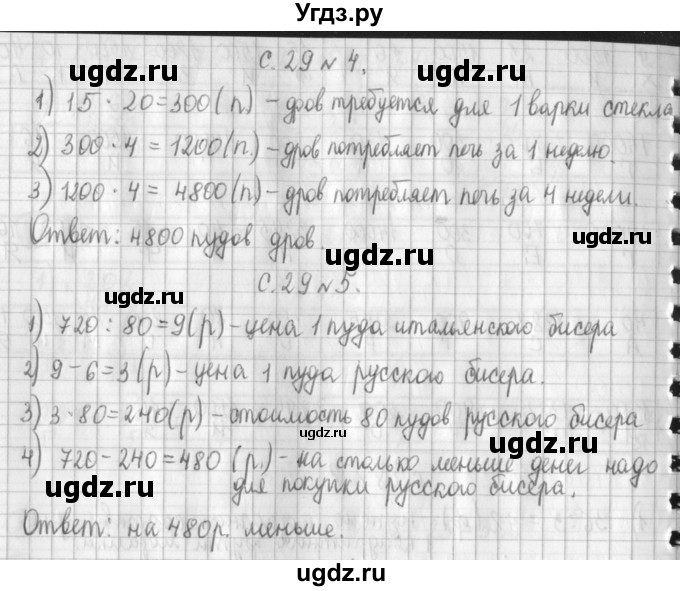 Угдз.ру
ugdz.ru ugdz.ru
с. 29 № 4.
1) 15 · 20 = 300 (п) – дров требуется для 1 варки стекла
ugdz.ru ugdz.ru
2) 300 · 4 = 1200 (п) – дров потребляет печь за 1 неделю.
3) 1200 · 4 = 4800 (п) – дров потребляет печь за 4 недели.
ugdz.ru
Ответ: 4800 пудов дров.
ugdz.ru ugdz.ru
с. 29 № 5.
ugdz.ru
1) 720 : 80 = 9 (р) – цена 1 пуда итальянского бисера
ugdz.ru
2) 9 – 6 = 3 (р) – цена 1 пуда русского бисера.
ugdz.ru
3) 3 · 80 = 240 (р) – стоимость 80 пудов русского бисера
ugdz.ru
4) 720 – 240 = 480 (р.) – на столько меньше денег надо
ugdz.ru ugdz.ru
для покупки русского бисера.
Ответ: на 480 р. меньше.
ugdz.ru